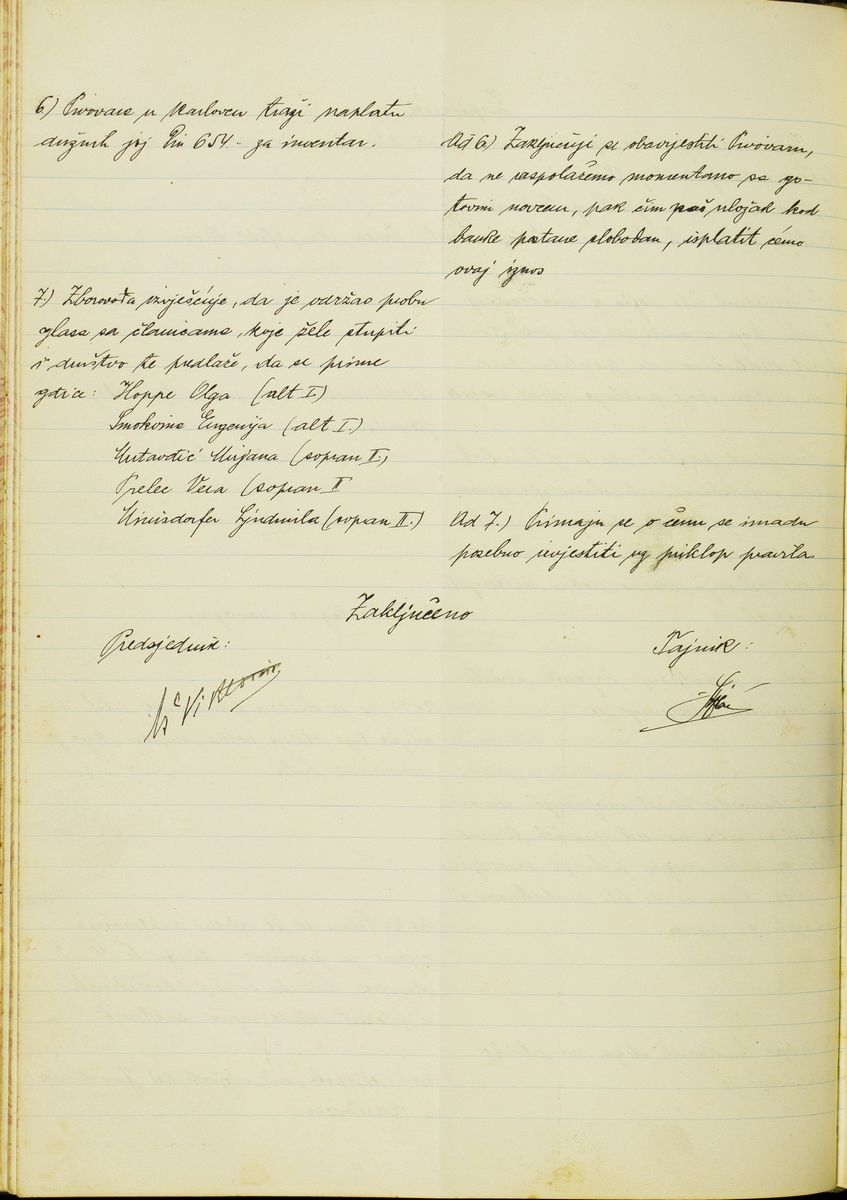 6.) Pivovara u Karlovcu traži naplatu
dužnih joj Din 654.- za inventar.
Ad 6) Zaključuje se obavijestiti Pivovaru,
da ne raspolažemo momentano sa go-
tovim novcem, pak čim naš uložak kod
banke postane slobodan, isplatit ćemo
ovaj iznos
7.) Zborovođa izvješćuje, da je održao probu
glasa sa članicama, koje žele stupiti
u društvo te predlaže, da se prime
gdice: Hoppe Olga (alt I)
Smokvina Eugenija (alt I.)
Mirjana (sopran II.)
Prelec Vera (sopran II
Ljudmila (sopran II.)
Ad 7.) Primaju se o čemu se imadu
posebno izvjestiti uz priklop pravila.
Zaključeno
Predsjednik:
Tajnik: